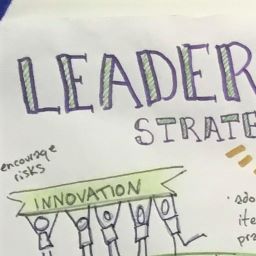 LEADER
STRATE
encourage
risks
INNOVATION
ite
pra